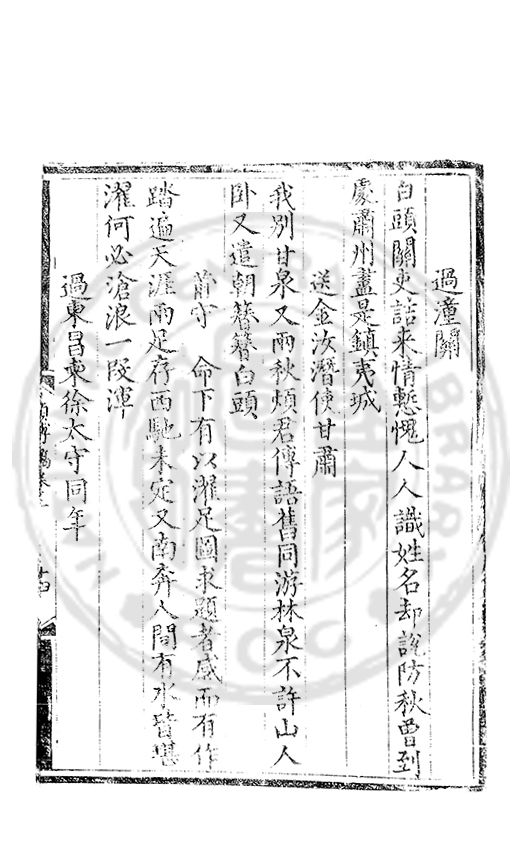 過潼關
白頭關吏詰来情慙愧人人識姓名却說防秋曾到
處肅州盡是鎮夷城
送金汝潛使甘肅
我別甘泉又兩秋煩君傳語舊同游林泉不許山人
卧又遣朝簪簪白頭
命下有以濯足圖求題者感而有作
踏遍天涯兩足存西馳未定又南奔人間有水皆堪
濯何必滄浪一段渾
過東昌柬徐太守同年